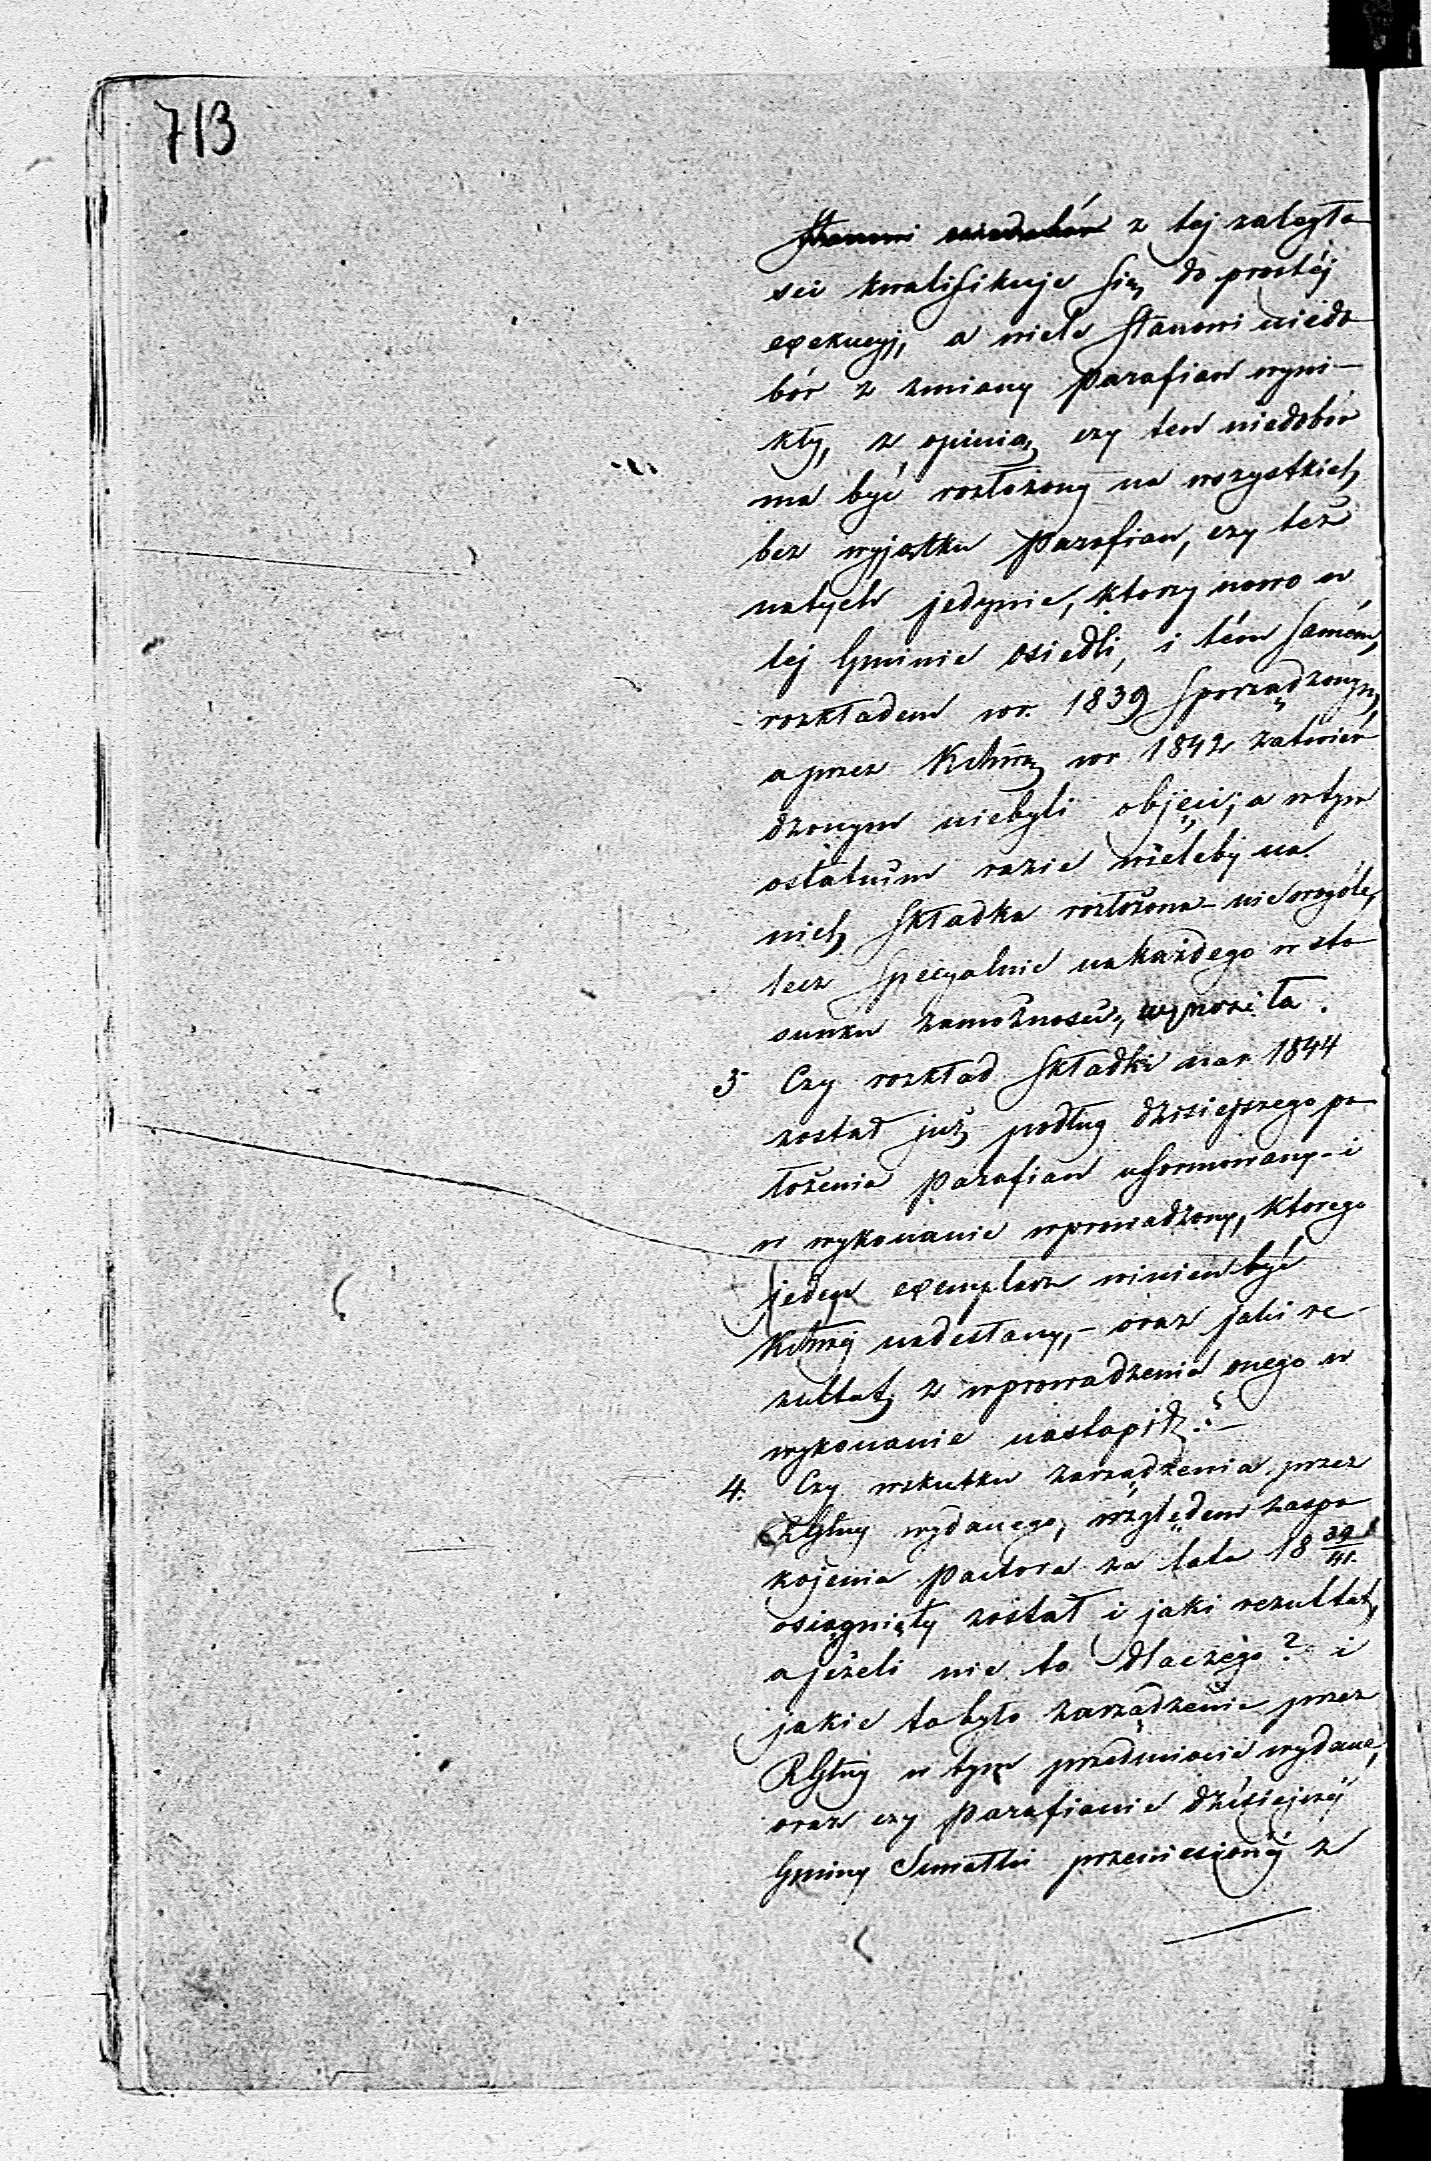 713
Stanowi niedobór z tej zaległo
ści kwalifikuje się do prostéj
exekucyj, a wiele stanowi niedo
bór z zmiany Parafian wyni–
kły, z opinią czy ten niedobór
ma być rozłożony na wszystkich
bez wyjątku Parafian, czy też
natych jedynie, ktorzy nowo w
tej Gminie osiedli, i tém samém,
rozkładem wr. 1839 sporządzonym,
a przez KRząd wr 1842 zatwier
dzonym niebyli objęci; a wtym
ostatnim razie wieleby na
nich składka rozłożona – nie wogóle,
lecz specyalnie na każdego w sto
sunku zamożności, wynosiła.
3 Czy rozkład składki na r. 1844
został już podług dzisiejszego po
łożenia Parafian uformowany – i
w wykonanie wprowadzony, ktorego
jeden exemplarz winien być
nadesłany, – oraz jaki re
zultat z wprowadzenia onego w
wykonanie nastąpił? –
4. Czy wskutku zarządzenia przez
wydanego, względem zaspo
kojenia Pastora za lata 18 39/41.
osiągnięty został i jaki rezultat,
a jeżeli nie to dlaczego? i
jakie to było zarządzenie przez
w tym przedmiocie wydane,
oraz czy Parafianie dzisiejszej
Gminy Suwałki przeniesionéj z